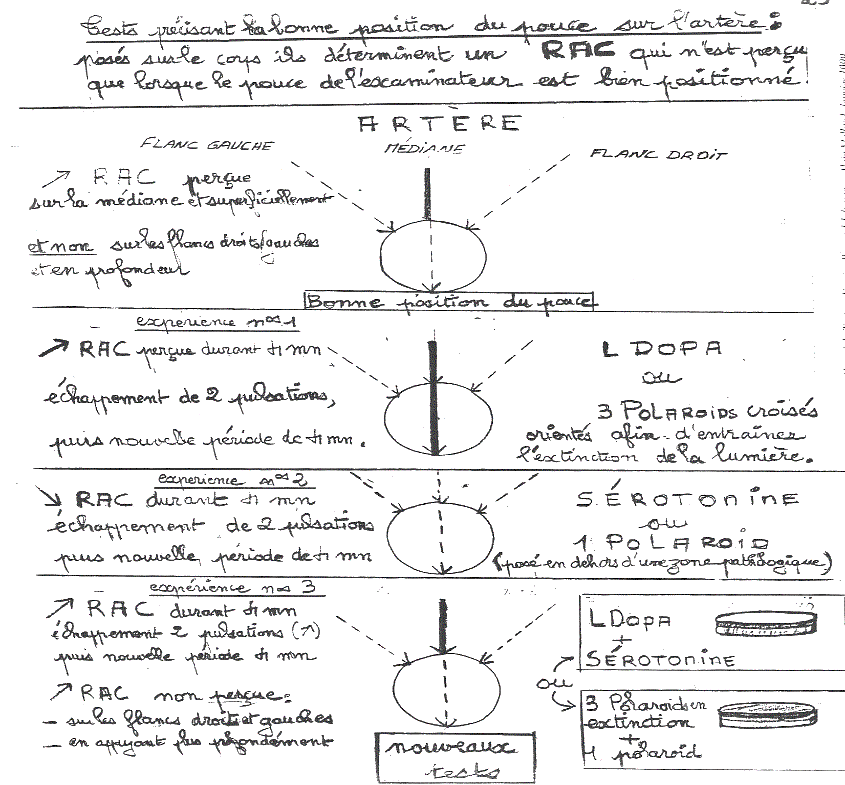 Tests précisant la bonne position du pouce sur l'artère:
posés sur le corps ils déterminent un RAC qui n'est perçu
que lorsque le pouce de l'escaminateur est bien positionné.
ARTÈRE
FLANC GAUCHE
MÉDIANE
FLANC DROIT
↗ RAC perçue
sur la médiane et superficiellement
et non sur les flancs droits/gauches
et en profondeur
Bonne position du pouce
experience nos 1
↗ RAC perçue durant ± 1 mn
échappement de 2 pulsations,
puis nouvelle période de ± 1 mn.
L DOPA
ou
3 POLAROIDS croisés
orientés afin d'entrainer
l'extinction de la lumière.
experience nos 2
↘ RAC durant ± 1 mn
échappement de 2 pulsations
puis nouvelle période de ± 1 mn
SÉROTONINE
ou
1 POLAROID
(posé en dehors d'une zone pathologique)
expérience nos 3
↗ RAC durant ± 1 mn
échappement 2 pulsations (↗)
puis nouvelle période ± 1 mn
↗ RAC non perçue:
- sur les flancs droits et gauches
- en appuyant plus profondément
nouveaux
tests
L Dopa
+
SÉROTONINE
ou
3 Polaroids en
extinction
+
1 polaroid